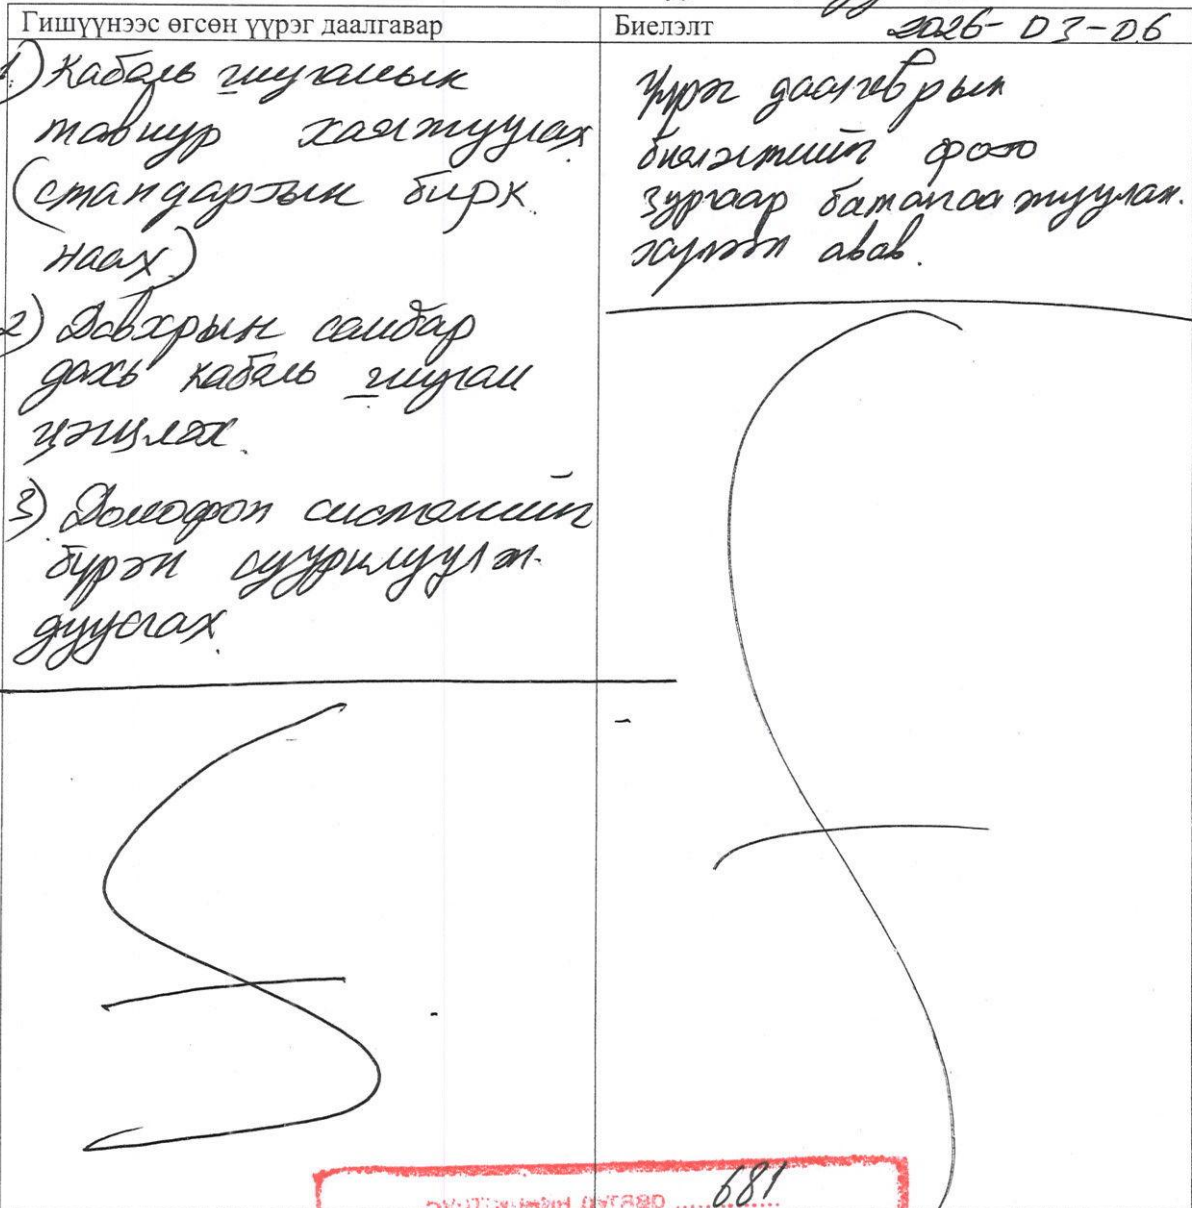 Гишүүнээс өгсөн үүрэг даалгавар
Биелэлт 2026-03-06
1) Кабель шугамын
тавиур хаягжуулах
(стандартын бирк
наах)
2) Давхрын самбар
дахь кабель шугам
цэгцлэх.
3) Домофон системийг
бүрэн суурилуулж
дуусгах.
Үүрэг даалгаврын
биелэлтийг фото
зургаар баталгаажуулан
хүлээн авав.
681